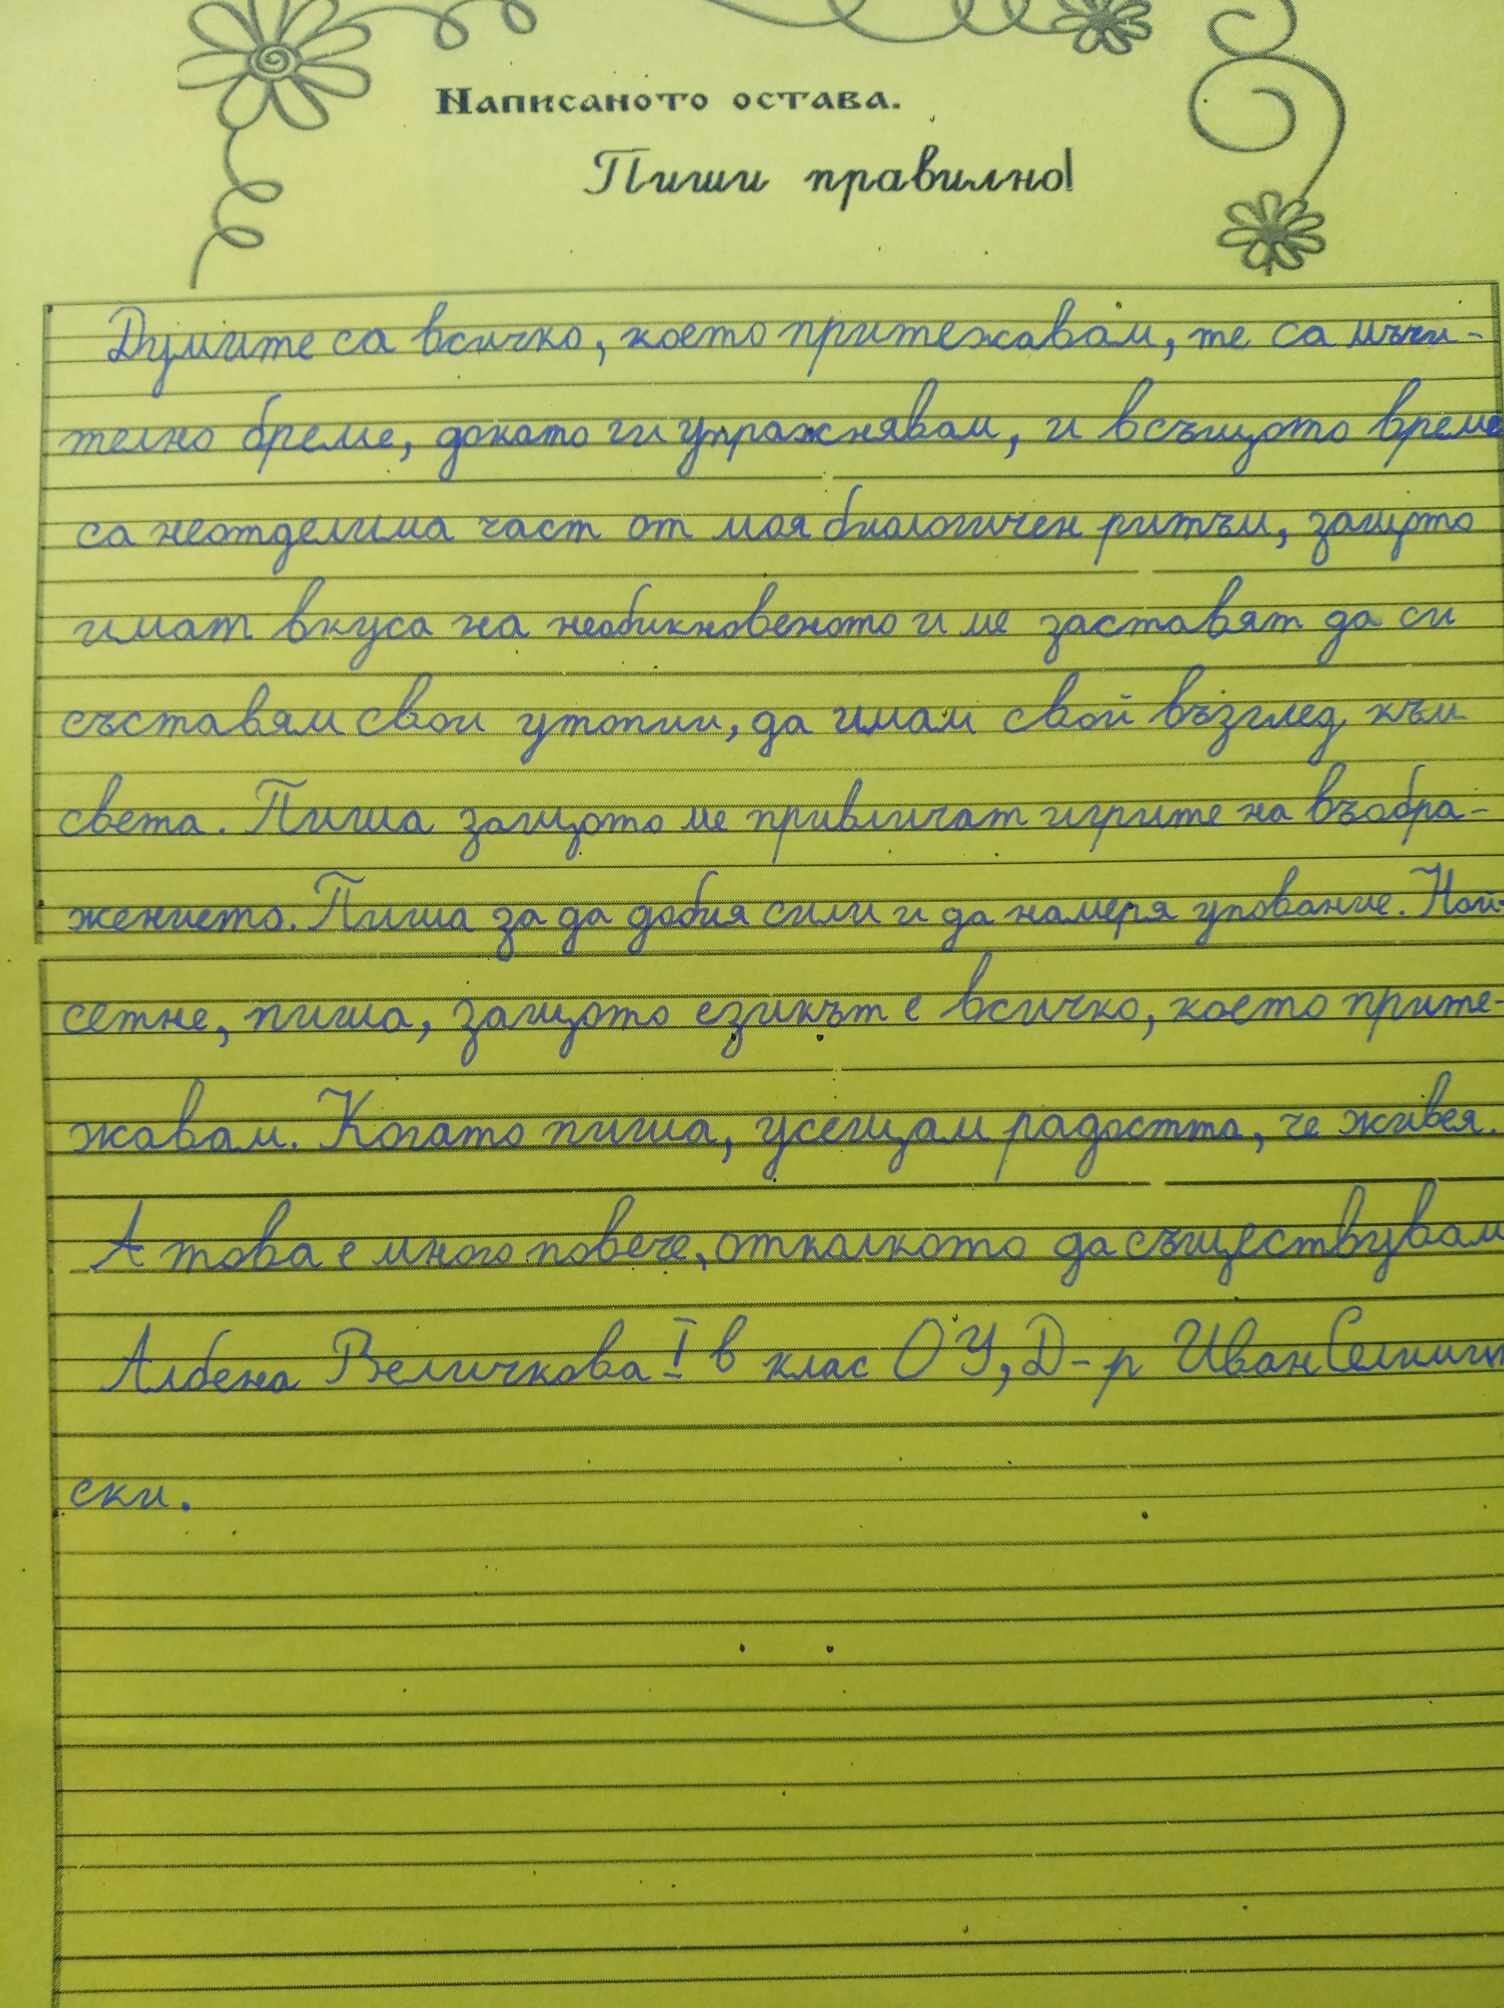 Написаното остава.
Пиши правилно!
Думите са всичко, което притежавам, те са мъчи-
телно бреме, докато ги упражнявам, и в същото време
са неотделима част от моя биологичен ритъм, защото
имат вкуса на необикновеното и ме заставят да си
съставям свои утопии, да имам свой възглед към
света. Пиша защото ме привличат игрите на въобра-
жението. Пиша за да добия сили и да намеря упование. Най-
сетне, пиша, защото езикът е всичко, което прите-
жавам. Когато пиша, усещам радостта, че живея.
А това е много повече, отколкото да съществувам
Албена Величкова I в клас ОУ, Д-р Иван Селимин
ски.